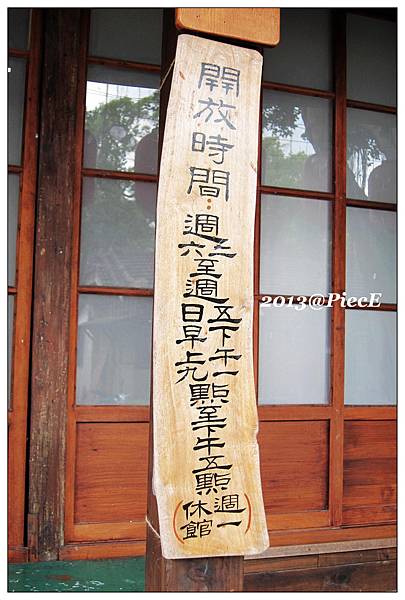 開放時間：
週
二
六
至週
五下午一
日早上九
點至下午五點
(週一
休館)
2013@PiecE